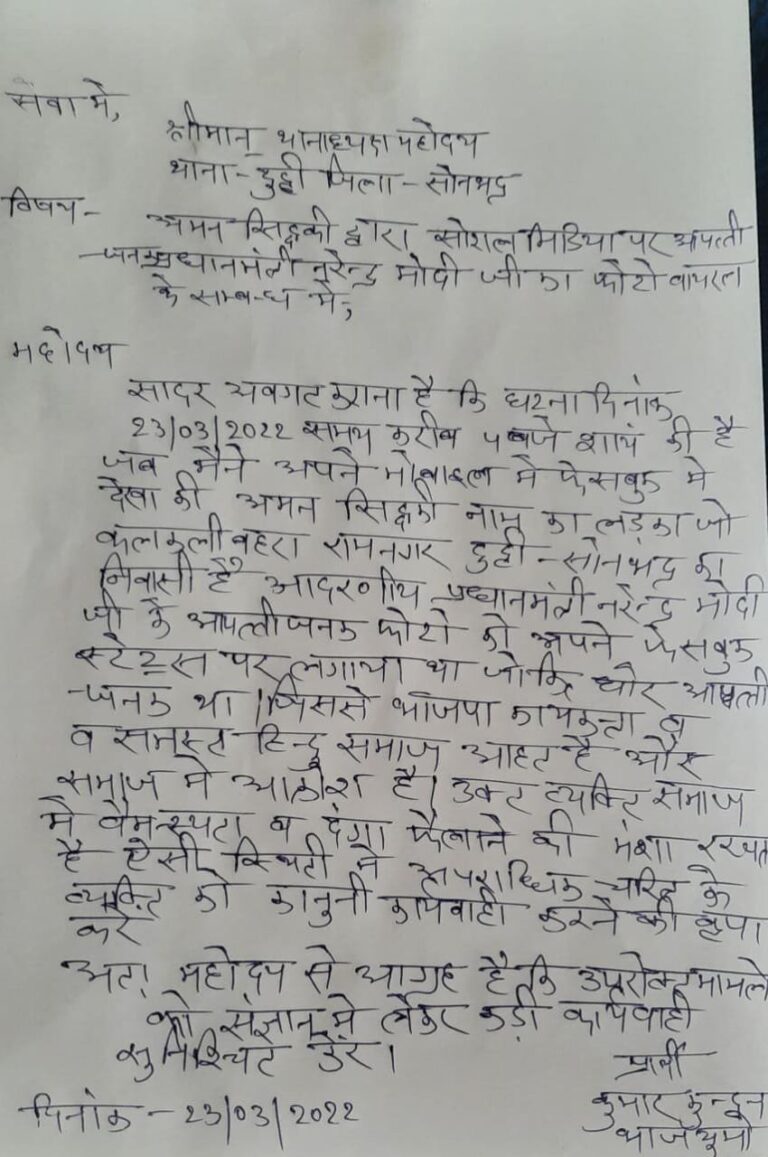 सेवा मे,
श्रीमान् थानाध्यक्ष महोदय
थाना - दुद्धी जिला - सोनभद्र
विषय - अमन सिद्दकी द्वारा सोशल मिडिया पर आपत्ती
-जनक प्रधानमंत्री नरेन्द्र मोदी जी का फोटो वायरल
के सम्बन्ध मे,
महोदय
सादर अवगत कराना है कि घटना दिनांक
23/03/2022 समय करीब 5 बजे शायं की है
जब मैने अपने मोबाइल मे फेसबुक मे
देखा की अमन सिद्दकी नाम का लड़का जो
कलकली बहरा रामनगर दुद्धी - सोनभद्र का
निवासी है आदरणीय प्रधानमंत्री नरेन्द्र मोदी
जी के आपत्तीजनक फोटो को अपने फेसबुक
स्टेटस पर लगाया था जोकि घोर आपत्ती
-जनक था। जिससे भाजपा कार्यकर्ता व
व समस्त हिन्दु समाज आहत है और
समाज मे आक्रोश है। उक्त व्यक्ति समाज
मे वैमनस्यता व दंगा फैलाने की मंशा रखता
है ऐसी स्थिती मे अपराधिक चरित्र के
व्यक्ति को कानुनी कार्यवाही करने की कृपा
करे
अतः महोदय से आग्रह है कि उपरोक्त मामले
को संज्ञान मे लेकर कड़ी कार्यवाही
सुनिश्चित करें।
प्रार्थी
दिनांक - 23/03/2022
कुमार कुन्दन
भाजयुमो